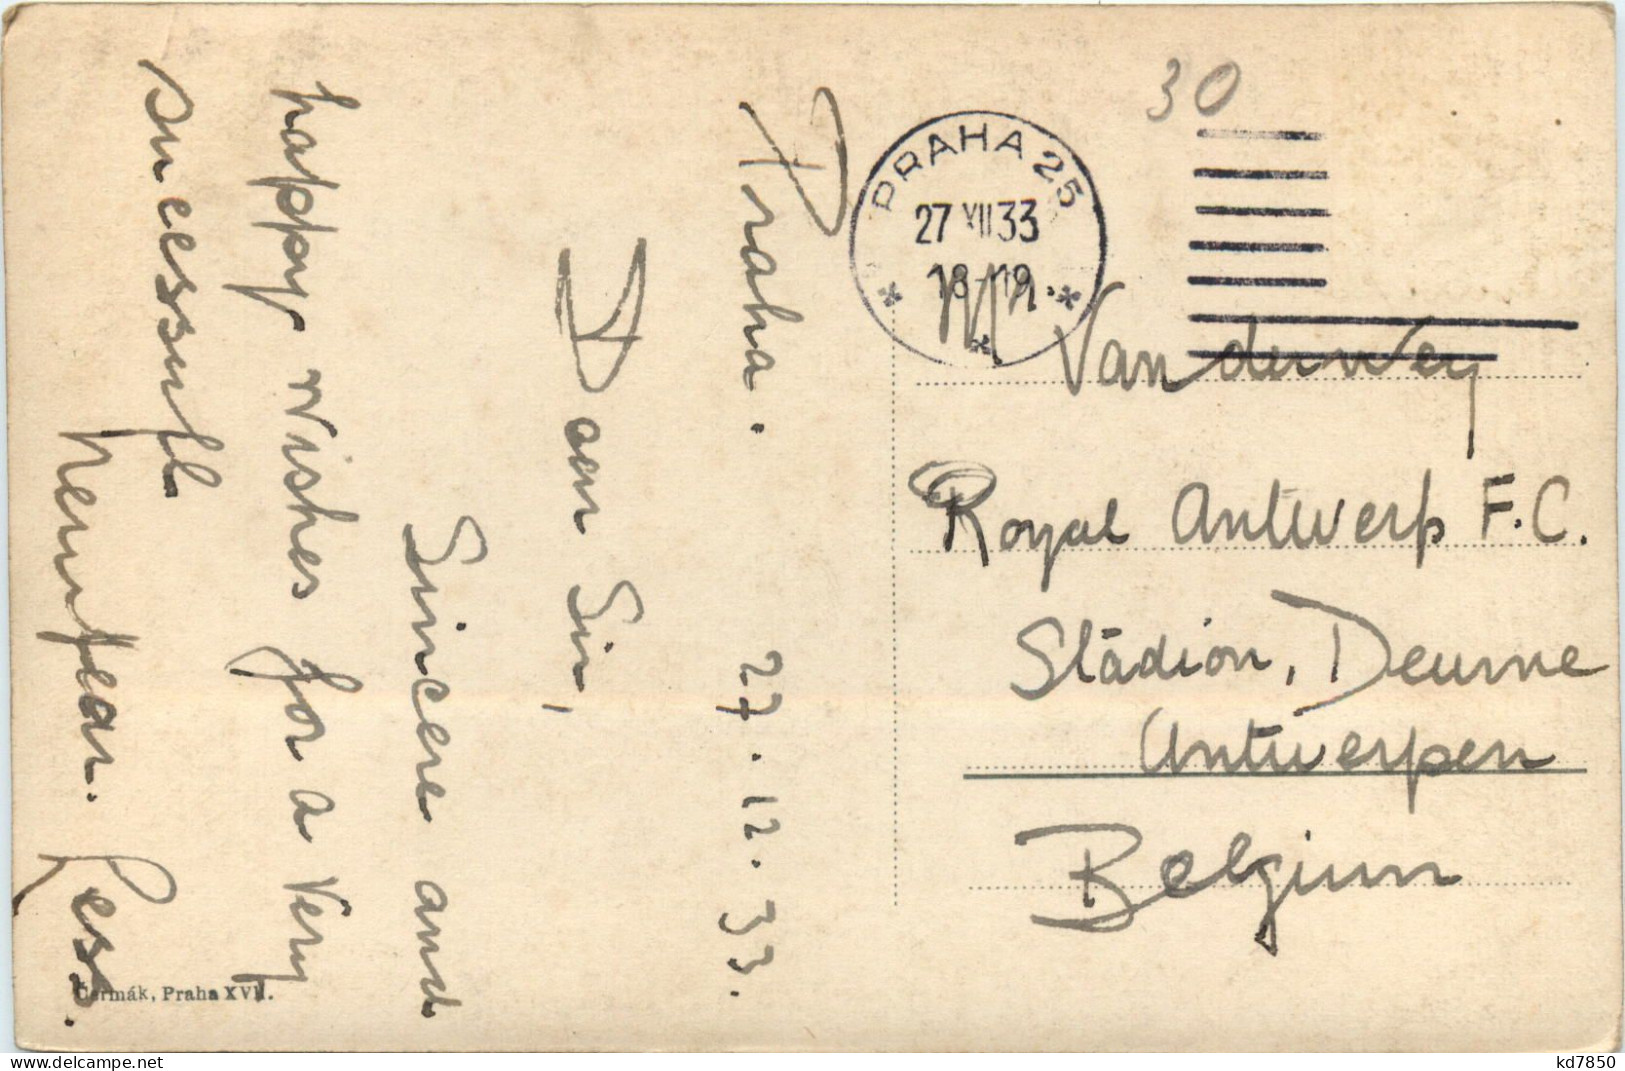 Praha. 27.12.33.
Dear Sir,
Sincere and
happy wishes for a very
sucessufl
new year.
Čermák, Praha XVII.
30
PRAHA 25
27 XII 33
18-19
Mr.
Van der Wey
Royal Antwerp F.C.
Stadion, Deurne
Antwerpen
Belgium
delcampe.net
kd7850